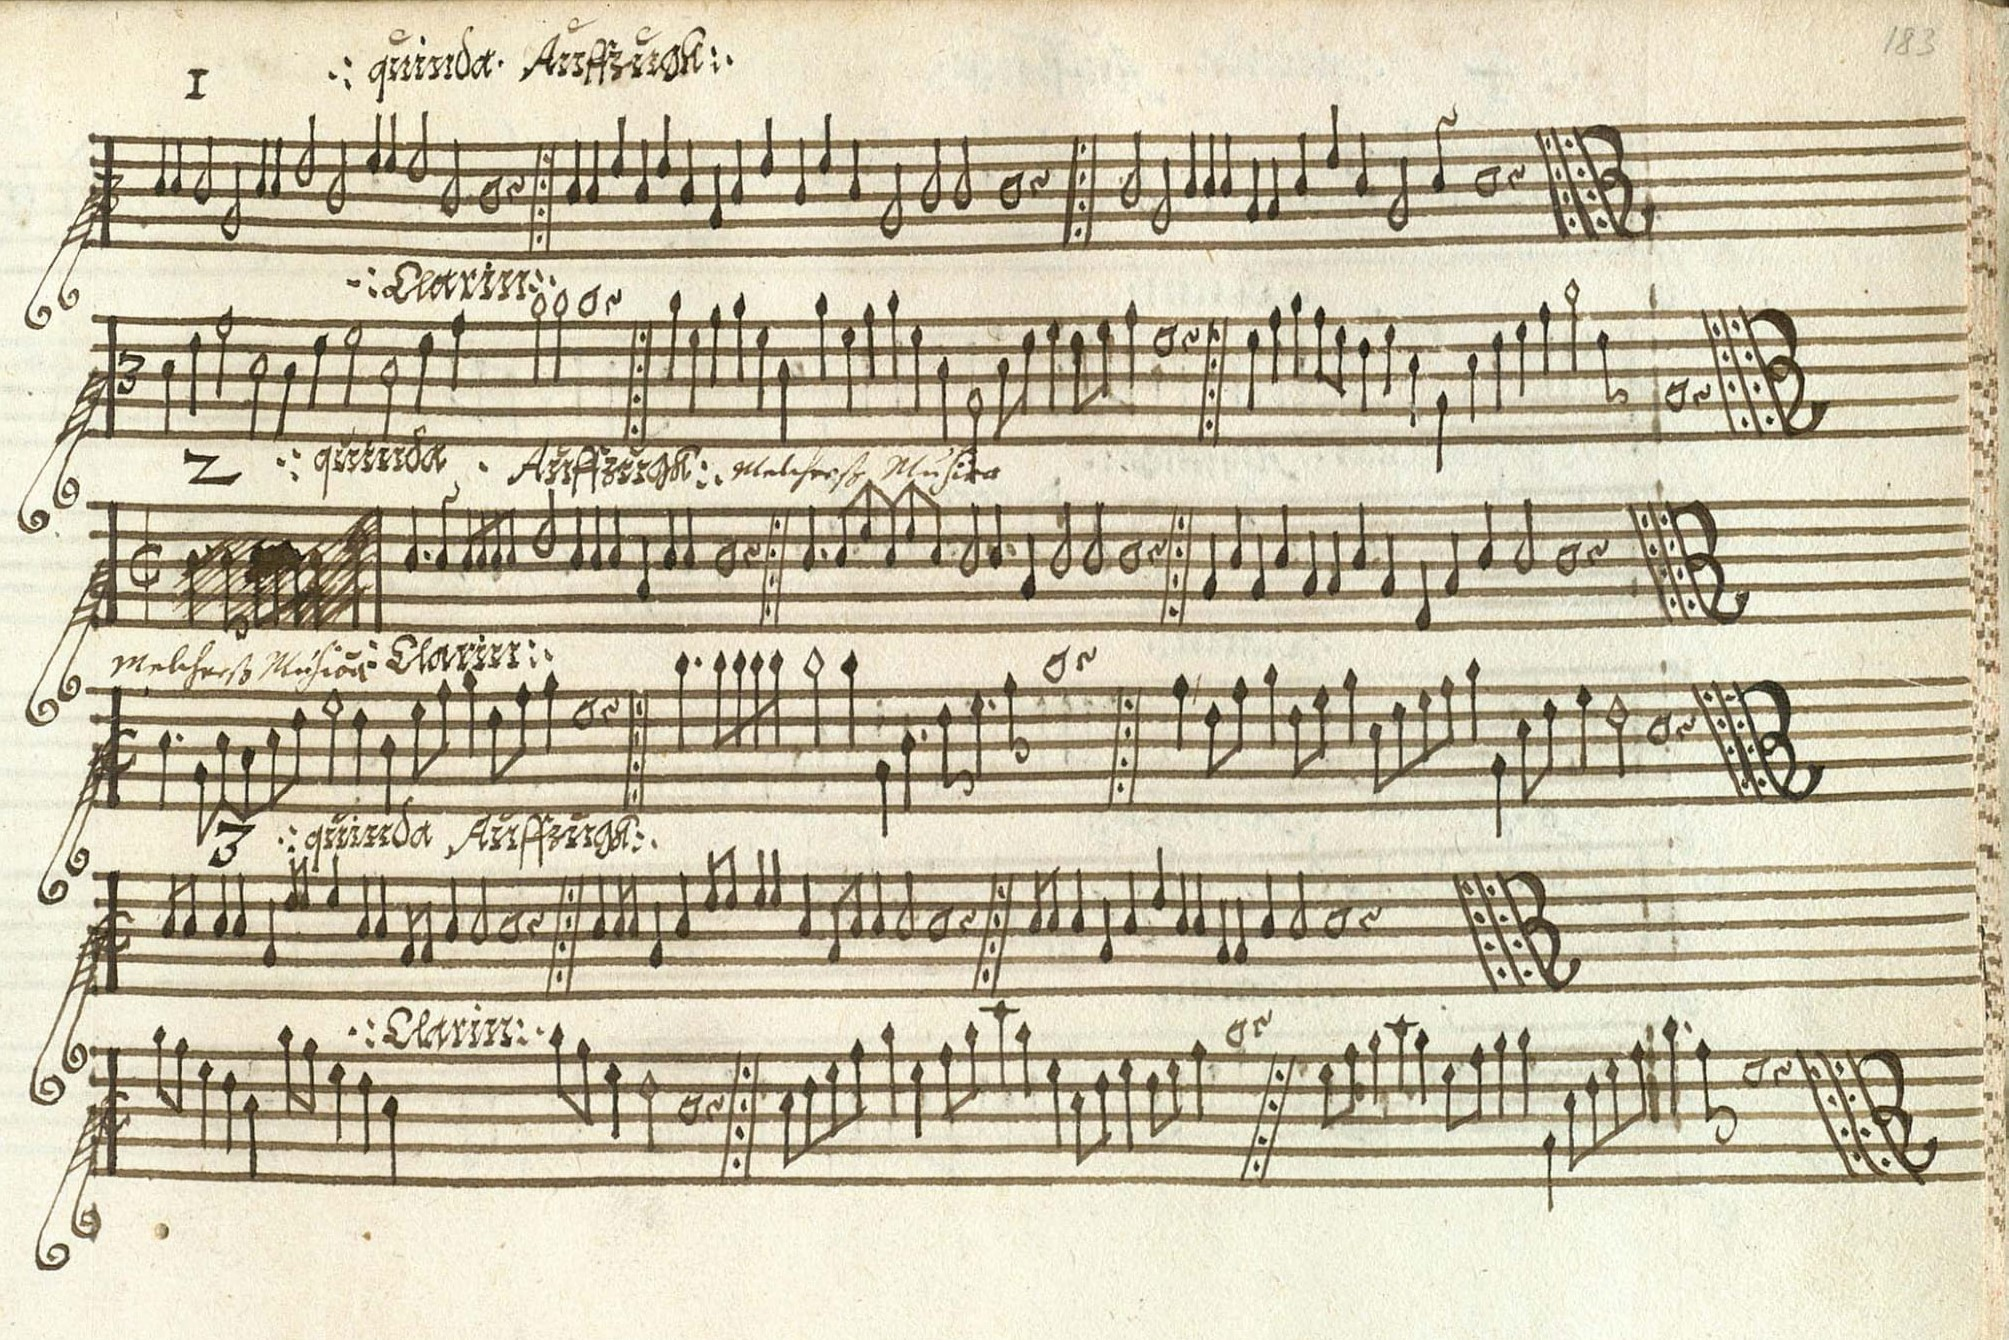 183
1 .: quinda · Auffzugk :.
.: Clarin :.
3
2 .: quinda . Auffzugk :. Melcherß Musica
C
Melcherß Musica .: Clarin :.
3 .: quinda Auffzugk :.
.: Clarin :.